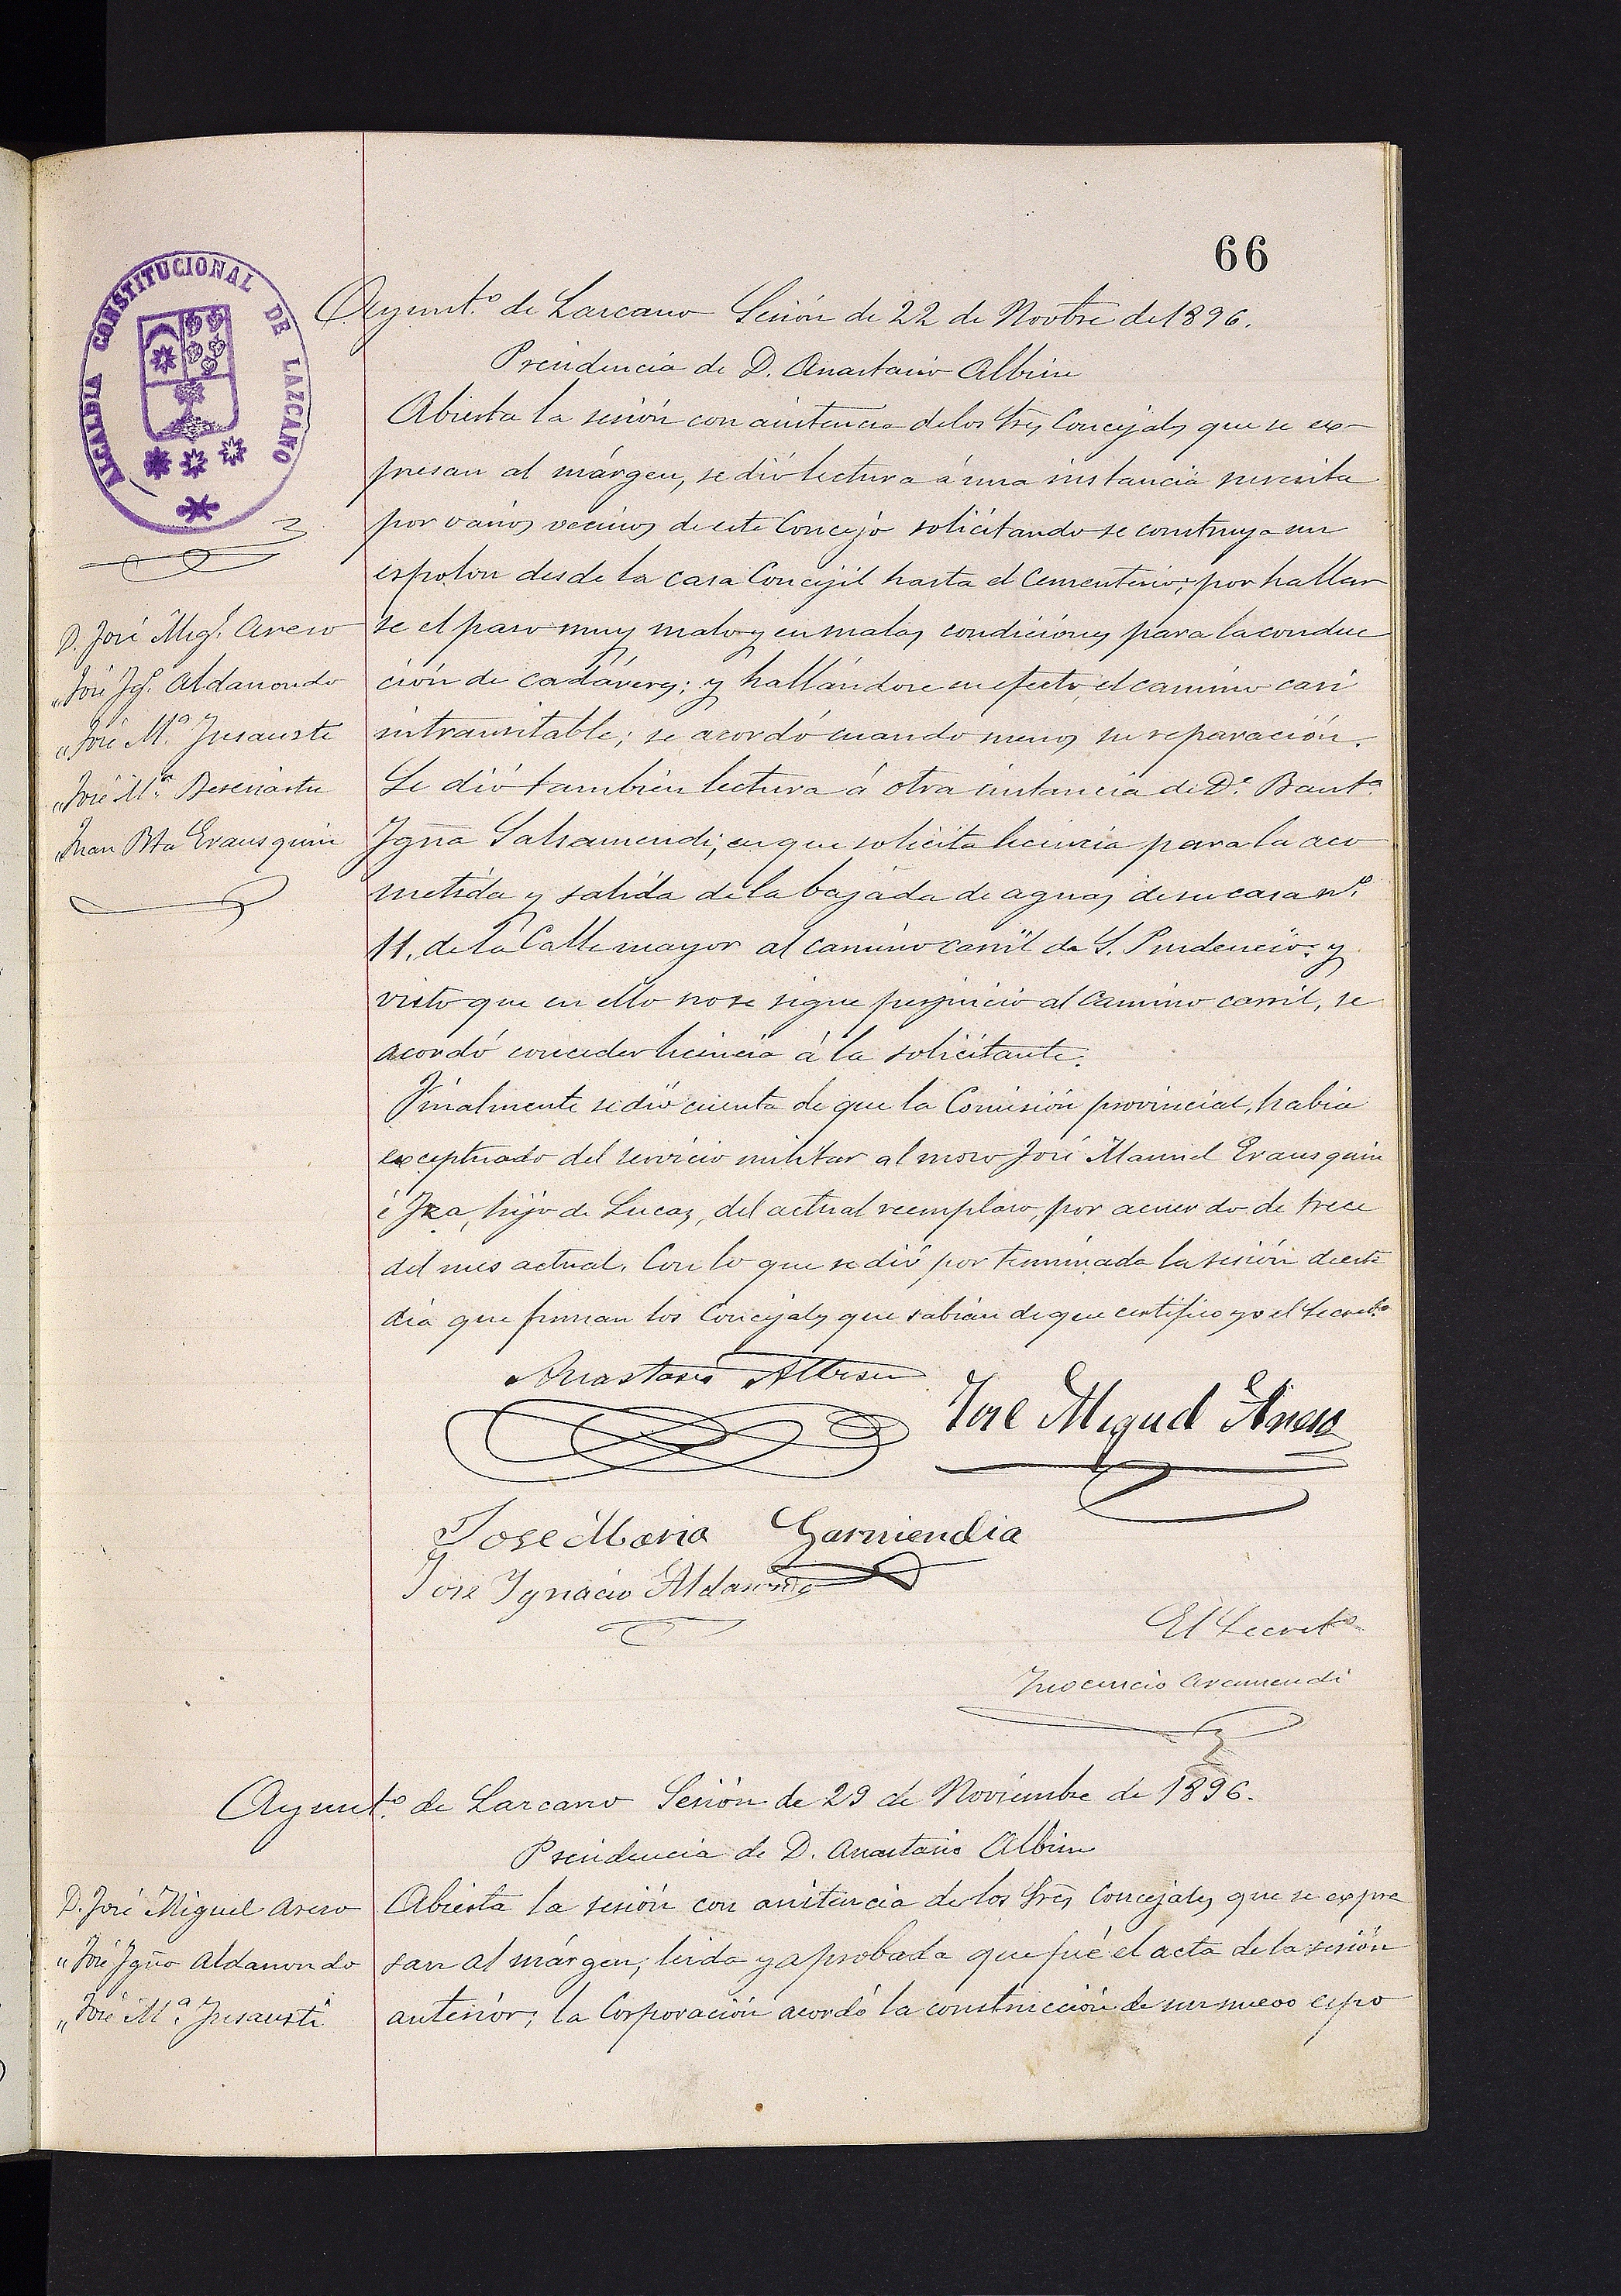 66
ALCALDIA CONSTITUCIONAL DE LAZCANO
Ayunt.º de Lazcano Sesión de 22 de Novbre de 1896.
Presidencia de D. Anastasio Albisu
D. José Mig.l Areso
„ José Ig.º Aldanondo
„ José M.ª Jusausti
„ José M.ª
„ Juan Bta Erausquin
Abierta la sesión con asistencia de los Sres Concejales que se ex-
presan al márgen, se dió lectura á una instancia suscrita
por varios vecinos de este Concejo solicitando se construya un
espolon desde la casa Concejil hasta el Cementerio; por hallar
se el paso muy malo y en malas condiciones para la conduc
ción de cadáveres; y hallándose en efecto, el camino casi
intransitable; se acordó cuando menos su reparación.
Se dió también lectura á otra instancia de D.ª Baut.ª
Igña Salsamendi, en que solicita licencia para la aco
metida y salida de la bajada de aguas de su casa nº.
11. de la Calle mayor al camino carril de S. Prudencio: y
visto que en ello no se sigue perjuicio al camino carril, se
acordó conceder licencia á la solicitante.
Finalmente se dió cuenta de que la Comisión provincial, habia
exceptuado del servicio militar al mozo José Manuel Erausquin
é Iza, hijo de Lucas, del actual reemplazo, por acuerdo de trece
del mes actual. Con lo que se dió por terminada la sesión de este
dia que firman los Concejales que sabian de que certifico yo el Secret.º
Anastasio Albisu
José Miguel Areso
Jose Maria Garmendia
José Ignacio Aldanondo
El Secret.º
Inocencio Aramendi
Ayunt.º de Lazcano Sesión de 29 de Noviembre de 1896.
Presidencia de D. Anastasio Albisu
D. José Miguel Areso
„ José Igño Aldanondo
„ José M.ª Jusausti
Abierta la sesión con asistencia de los Sres Concejales que se expre
san al márgen; leida y aprobada que fué el acta de la sesión
anterior; la Corporación acordó la construcción de un nuevo espo